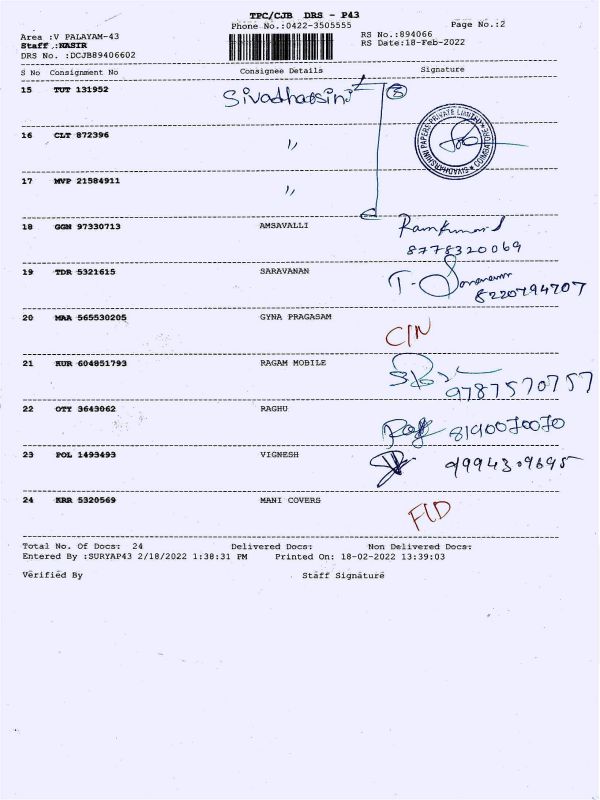 TPC/CJB DRS - P43
Phone No.:0422-3505555 Page No.:2
Area :V PALAYAM-43 RS No.:894066
Staff :NASIR RS Date:18-Feb-2022
DRS No. :DCJB89406602
S No Consignment No Consignee Details Signature
15 TUT 131952 Sivadharsini 3
16 CLT 872396 "
17 MVP 21584911 "
PAPERS PRIVATE LIMITED COIMBATORE
18 GGN 97330713 AMSAVALLI Ramkumar
8778320069
19 TDR 5321615 SARAVANAN T. Saravanan
8220794707
20 MAA 565530205 GYNA PRAGASAM C/N
21 KUR 604851793 RAGAM MOBILE
9787570757
22 OTY 3643062 RAGHU 8190070070
23 POL 1493493 VIGNESH 9994309695
24 KRR 5320569 MANI COVERS F/D
Total No. Of Docs: 24 Delivered Docs: Non Delivered Docs:
Entered By :SURYAP43 2/18/2022 1:38:31 PM Printed On: 18-02-2022 13:39:03
Verified By Staff Signature